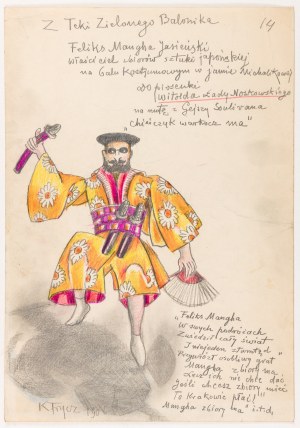 Z Teki Zielonego Balonika
14
Feliks Mangha Jasieński
właściciel zbiorów sztuki japońskiej
na Balu Kostjumowym w jamie Michalik(owej)
do piosenki
Witolda Łady Noskowskiego
na nutę z Gejszy
"Chińczyk warkocz ma"
"Feliks Mangha
W swych podróżach
Zwiedził cały świat
Przywiózł
Mangha zbiory ma
Jeśli chcesz zbiory mieć
To Krakowie płać!
Mangha zbiory ma" i.t.d.